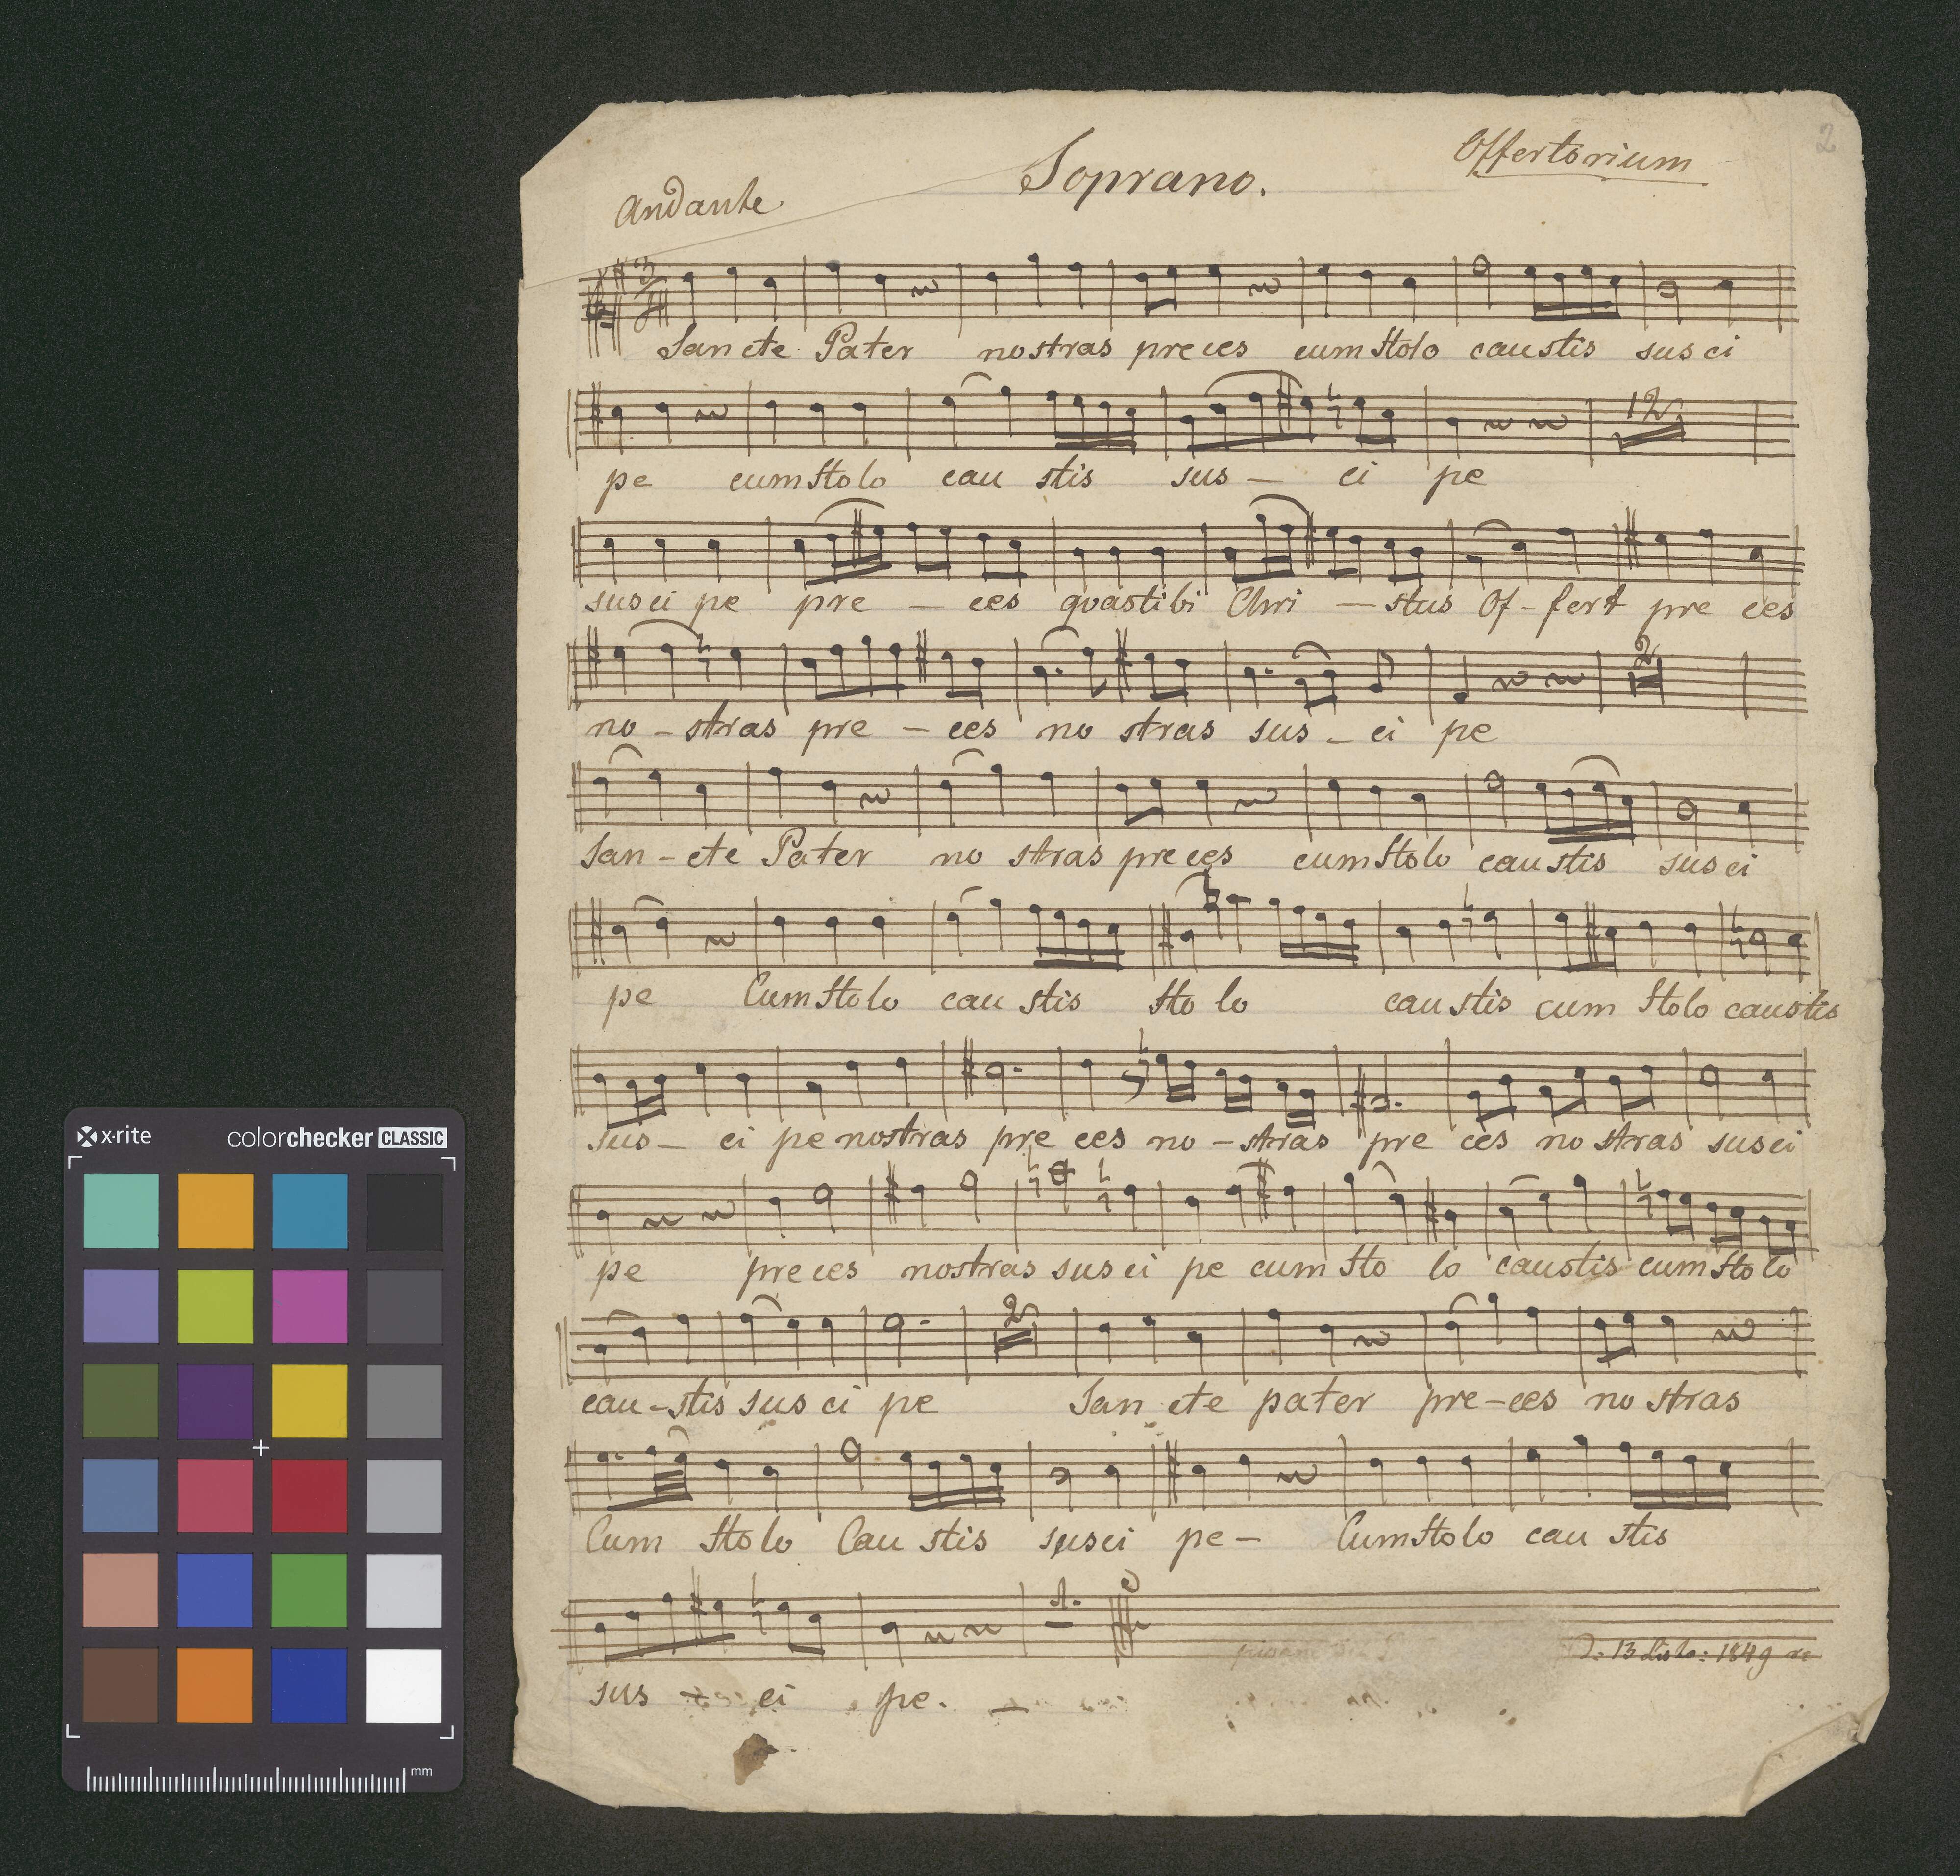 2
Offertorium
Soprano.
Andante
3
San cte Pater nostras pre ces cum Holo caustis sus ci
12
pe cum Holo cau stis sus – ci pe
sus ci pe pre – ces quas tibi Chri – stus Of – fert pre ces
2
no – stras pre – ces no stras sus – ci pe
San – cte Pater no stras pre ces cum Holo cau stis sus ci
pe Cum Holo cau stis Ho lo cau stis cum Holo caustis
sus – ci pe nostras pre ces no – stras pre ces no stras sus ci
pe pre ces nostras sus ci pe cum Ho lo caustis cum Ho lo
2
cau – stis sus ci pe San cte pater pre – ces no stras
Cum Ho lo Cau stis sus ci pe – Cum Holo cau stis
1.
13 1849
sus – ci pe. –
x·rite colorchecker CLASSIC
mm